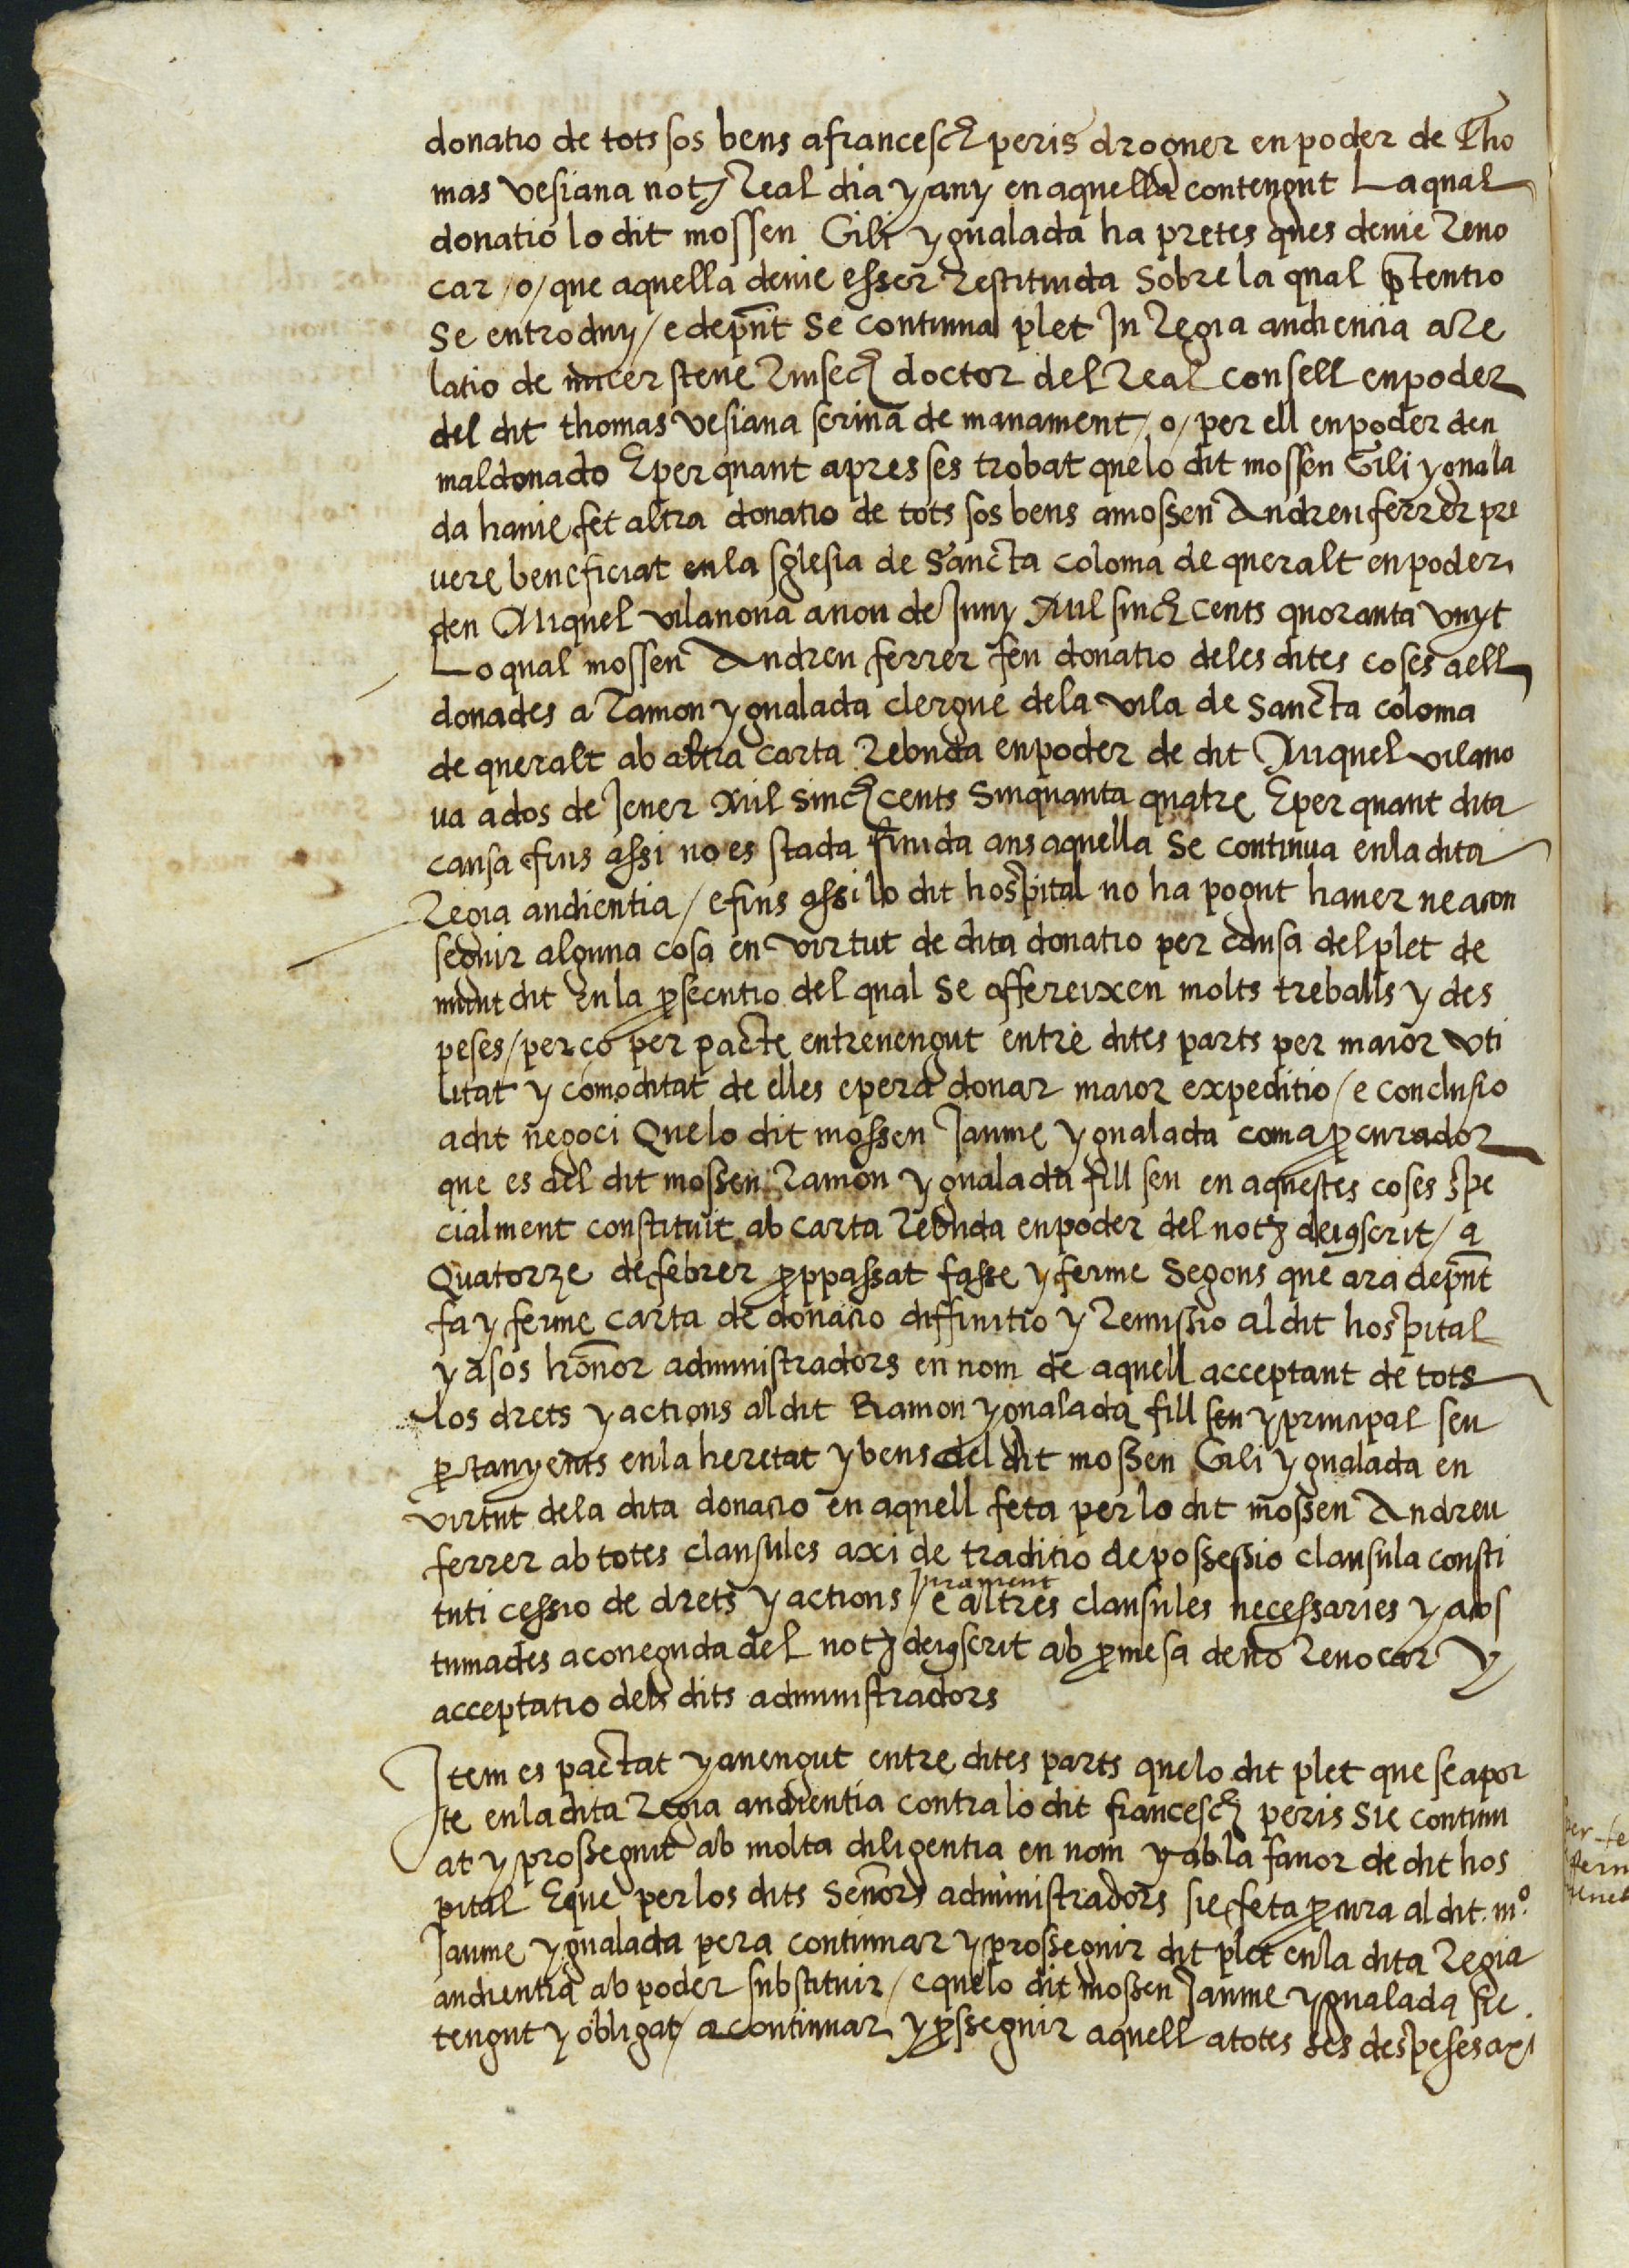 donatio de tots sos bens a francesch peris droguer en poder de Tho
mas vesiana notz Real dia y any en aquella contengut La qual
donatio lo dit mossen Gili ygualada ha pretes ques devie revo
car / o / que aquella devie esser restituida Sobre la qual ptentio
Se entroduy / e depnt Se continua plet In Regia audiencia a re
latio de micer steve Rusech doctor del Real consell en poder
del dit thomas vesiana scriua de manament / o / per ell en poder den
maldonado E per quant apres ses trobat que lo dit mossen Gili yguala
da havie fet altra donatio de tots sos bens a mossen Andreu ferrer pre
vere beneficiat en la sglesia de Sancta coloma de queralt en poder
den Miquel vilanova a nou de Juny Mil sinch cents quoranta vuyt
Lo qual mossen Andreu ferrer feu donatio de les dites coses a ell
donades a Ramon ygualada clergue de la vila de Sancta coloma
de queralt ab altra carta rebuda en poder de dit Miquel vilano
va a dos de Jener Mil sinch cents Sinquanta quatre E per quant dita
causa fins assi no es stada finida ans aquella Se continua en la dita
Regia audientia / e fins assi lo dit hospital no ha pogut haver ne acon
seguir alguna cosa en virtut de dita donatio per causa del plet de
munt dit en la psecutio del qual Se offereixen molts treballs y des
peses / per ço per pacte entrevengut entre dites parts per maior uti
litat y comoditat de elles e pera donar maior expeditio / e conclusio
a dit negoci Que lo dit mossen Jaume ygualada com a pcurador
que es del dit mossen Ramon ygualada fill seu en aquestes coses spe
cialment constituit ab carta rebuda en poder del notz deiqscrit / a
Quatorze de febrer pppassat fasse y ferme Segons que ara depnt
fa y ferme carta de donacio diffinitio y remissio al dit hospital
y a sos honor administradors en nom de aquell acceptant de tots
los drets y actions al dit Ramon ygualada fill seu y principal seu
ptanyents en la heretat y bens del dit mossen Gili ygualada en
virtut de la dita donacio en aquell feta per lo dit mossen Andreu
ferrer ab totes clausules axi de traditio de possessio clausula consti
tuti cessio de drets y actions / jurament e altres clausules necessaries y acos
tumades a coneguda del notz deiqscrit ab pmesa de no revocar y
acceptatio dels dits administradors
Item es pactat y avengut entre dites parts que lo dit plet que se apor
te en la dita Regia audientia contra lo dit francesch peris Sie continu
at y prosseguit ab molta diligentia en nom y ab la favor de dit hos
pital E que per los dits Senors administradors sie feta pcura al dit mo
Jaume ygualada pera continuar y prosseguir dit plet en la dita Regia
audientia ab poder substituir / e que lo dit mossen Jaume ygualada sie
tengut y obligat / a continuar y psseguir aquell a totes ses despeses axi